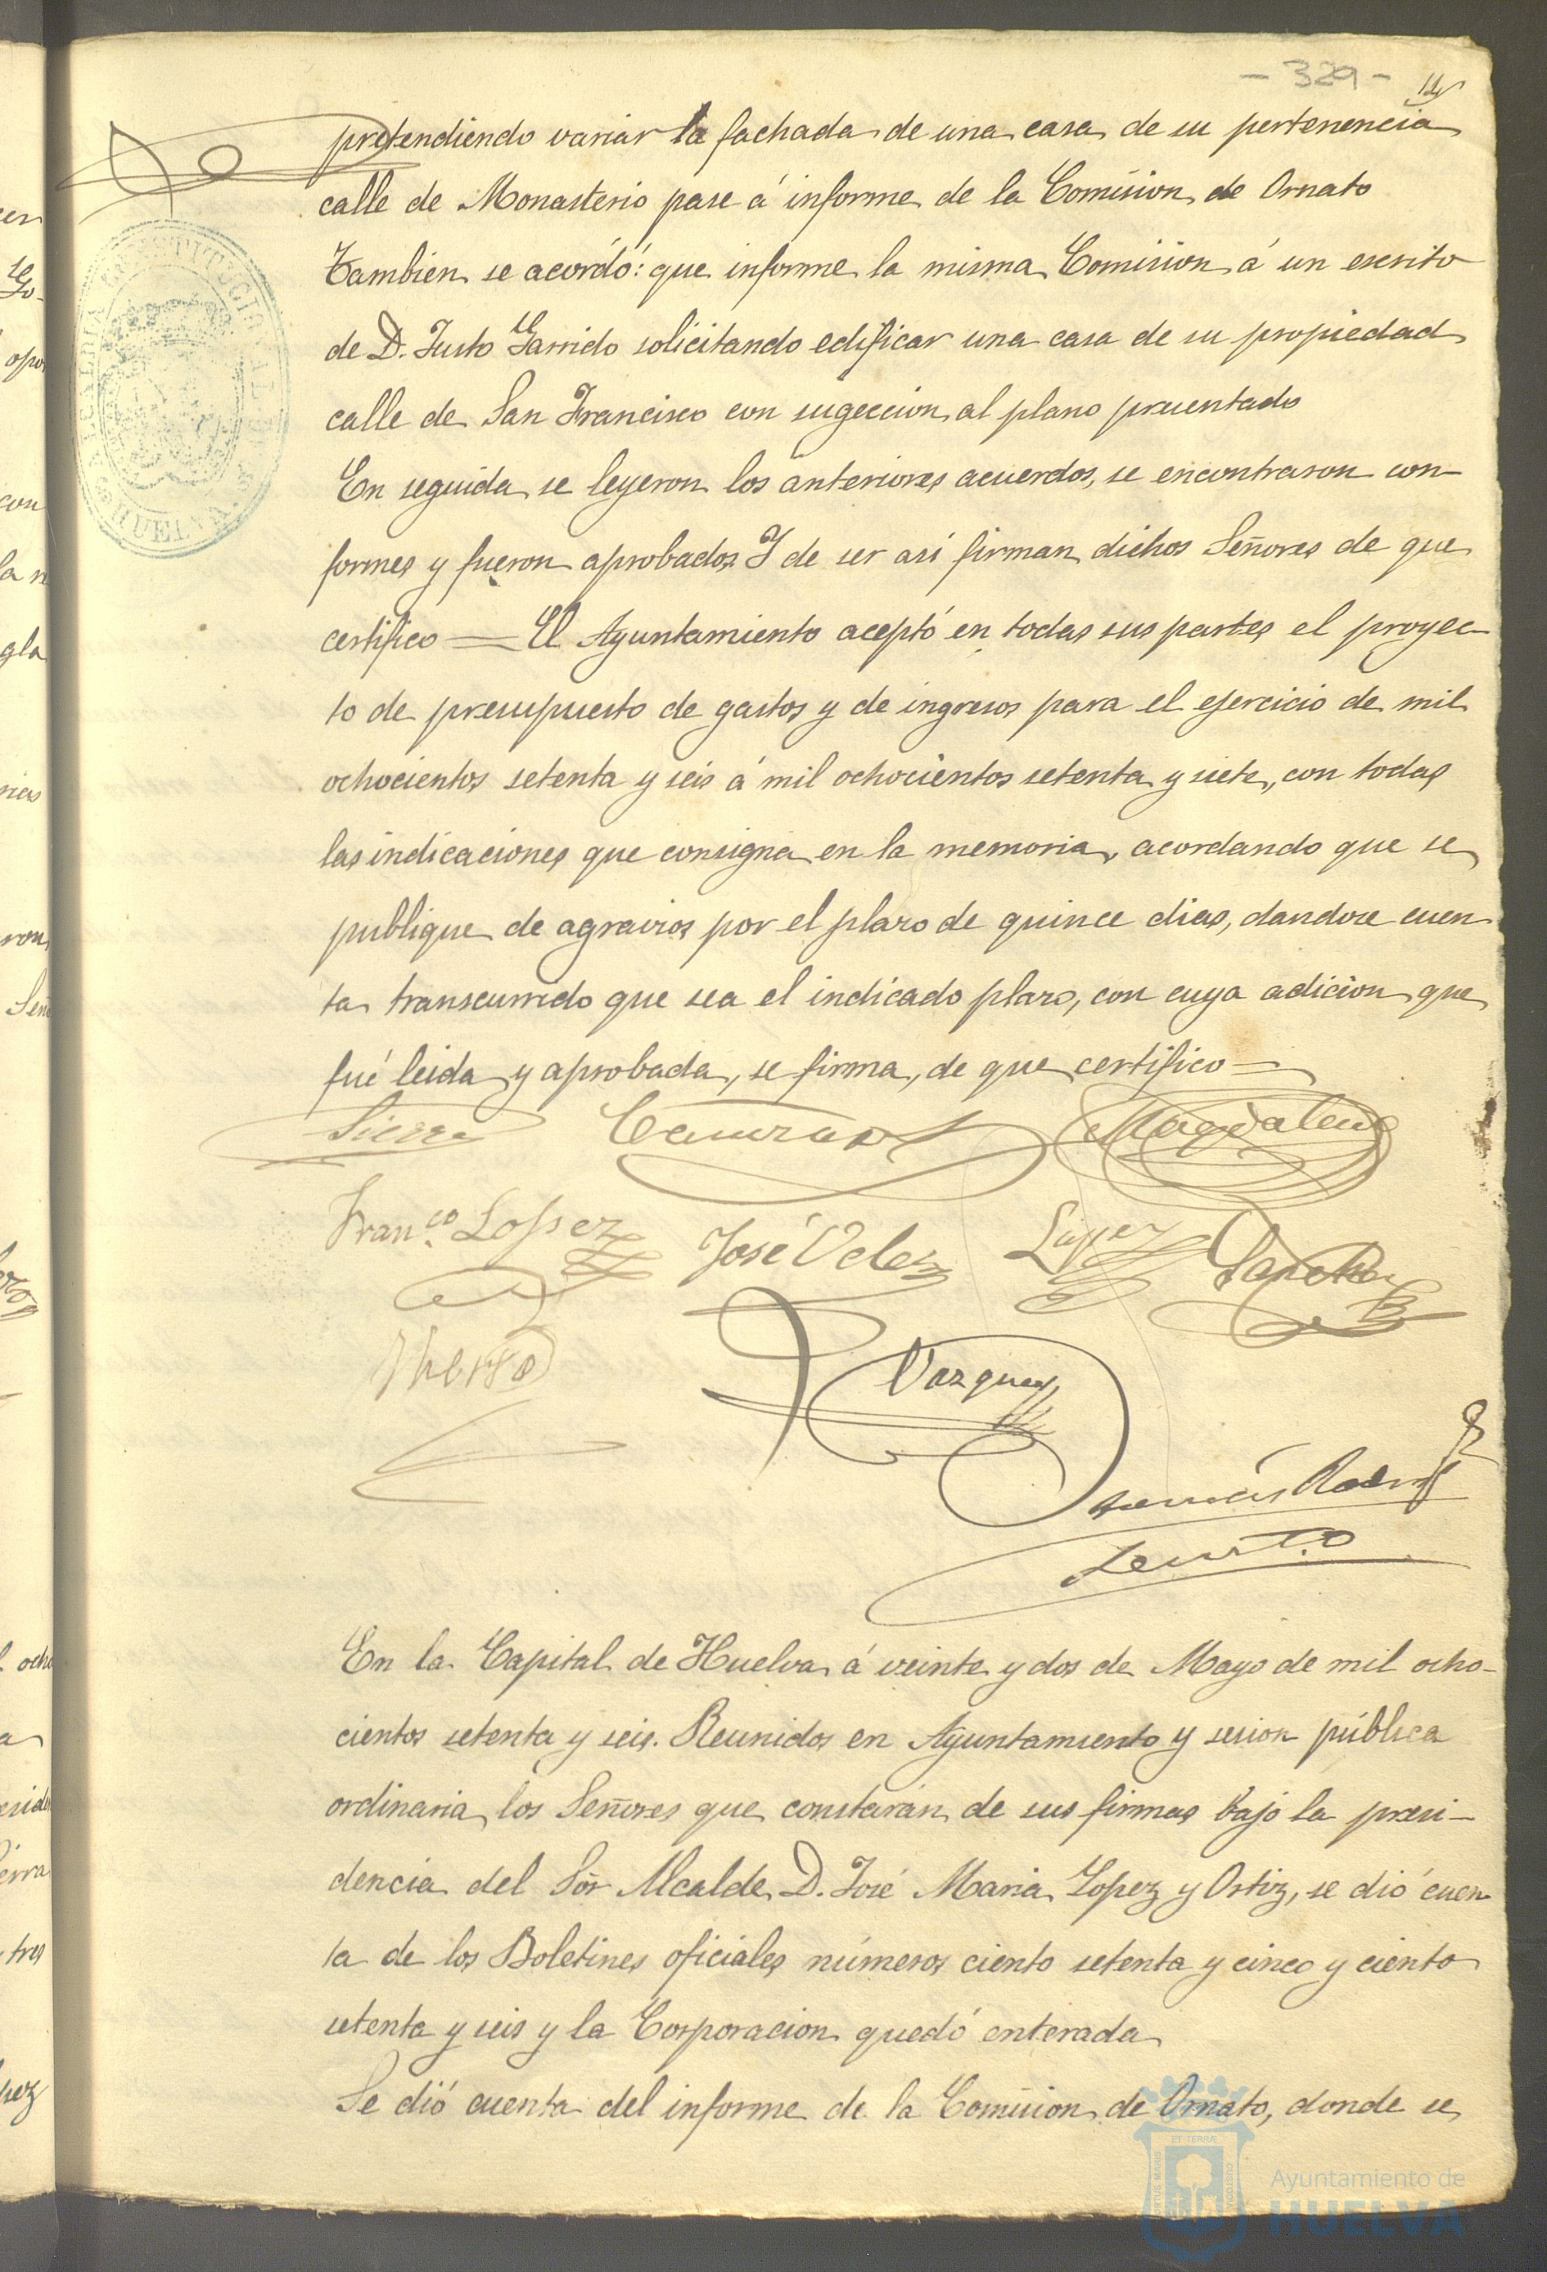 - 329 -
pretendiendo variar la fachada de una casa de su pertenencia
calle de Monasterio pase á informe de la Comision de Ornato
Tambien se acordó: que informe la misma Comision á un escrito
de D. Justo Garrido solicitando edificar una casa de su propiedad
calle de San Francisco con sugeccion al plano presentado
En seguida se leyeron los anteriores acuerdos, se encontraron con-
formes y fueron aprobados. Y de ser así firman dichos Señores de que
certifico = El Ayuntamiento aceptó en todas sus partes el proyec-
to de presupuesto de gastos y de ingresos para el ejercicio de mil
ochocientos setenta y seis á mil ochocientos setenta y siete, con todas
las indicaciones que consigna en la memoria, acordando que se
publique de agravios por el plazo de quince dias, dandose cuen-
ta transcurrido que sea el indicado plazo, con cuya adicion que
fué leida y aprobada, se firma, de que certifico =
Sierra Magdalena
Fran.co Lopez José Velez Lopez Sanchez
Vazquez
Tomás
En la Capital de Huelva á veinte y dos de Mayo de mil ocho-
cientos setenta y seis. Reunidos en Ayuntamiento y sesion pública
ordinaria los Señores que constarán de sus firmas bajo la presi-
dencia del Sõr Alcalde D. José Maria Lopez y Ortiz, se dió cuen-
ta de los Boletines oficiales números ciento setenta y cinco y ciento
setenta y seis y la Corporacion quedó enterada
Se dió cuenta del informe de la Comision de Ornato, donde se
Ayuntamiento de
HUELVA